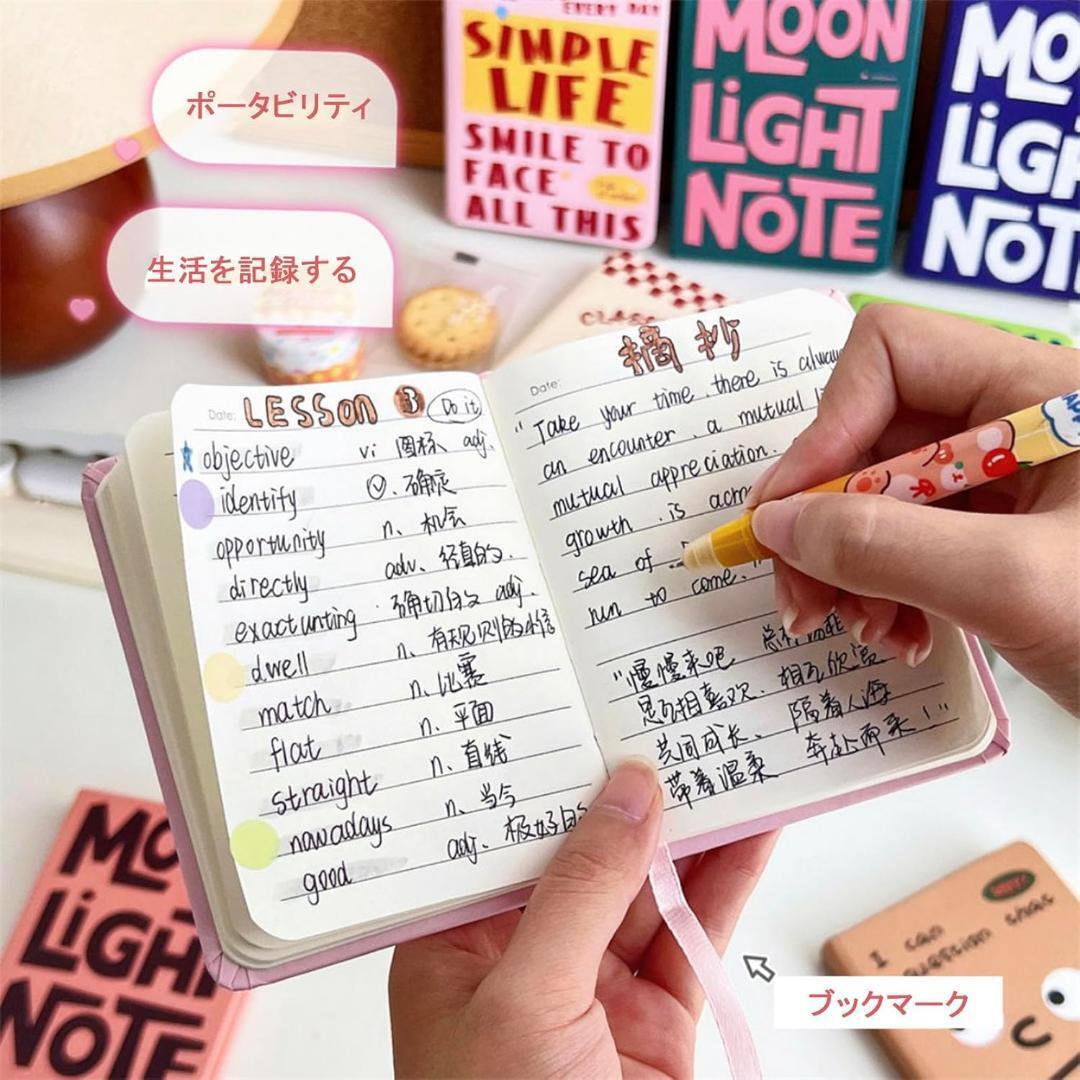 ポータビリティ
生活を記録する
EVERY DAY
SIMPLE
LIFE
SMILE TO
FACE
ALL THIS
MOON
LIGHT
NOTE
MO
LIGH
NOT
Date:
LESSON 3 Do it
objective vi 图标 adj.
identify 确定
opportunity n. 机会
directly adv. 径直的.
exactunting 确切的 adj.
dwell n. 有规则的
match n. 比赛
flat n. 平面
straight n. 直线
nowadays n. 当今
good adj. 极好的
Date:
摘抄
"Take your time. there is always
an encounter. a mutual li
mutual appreciation.
growth. is acro
sea of
run to come."
"慢慢来吧 总有
互相喜欢. 相互欣赏
共同成长、 隔着人海
带着温柔 奔赴而来!"
MO
LIGH
NOTE
I can
ブックマーク